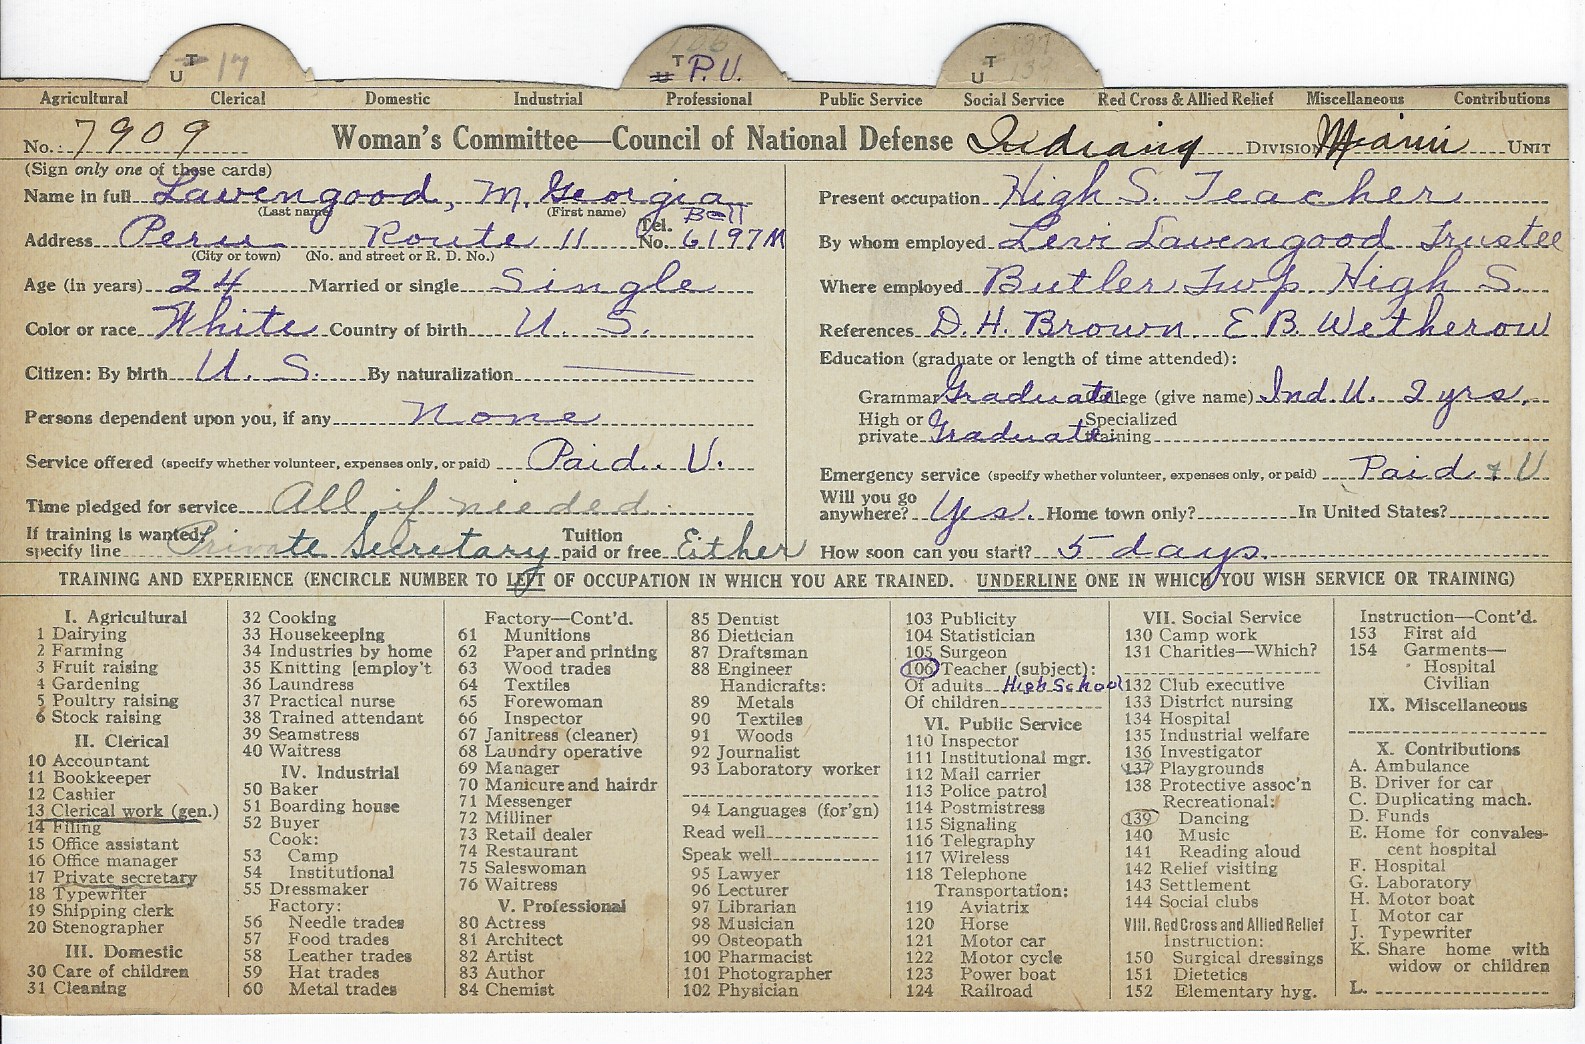 U T 17
U T P.U. 106
U T 137 139
Agricultural Clerical Domestic Industrial Professional Public Service Social Service Red Cross & Allied Relief Miscellaneous Contributions
No. 7909 Woman's Committee—Council of National Defense Indiana DIVISION Miami UNIT
(Sign only one of these cards)
Name in full Lavengood, M. Georgia
(Last name) (First name)
Address Peru Route 11 Tel. No. Bell 6197M
(City or town) (No. and street or R. D. No.)
Age (in years) 24 Married or single Single
Color or race White Country of birth U. S.
Citizen: By birth U. S. By naturalization
Persons dependent upon you, if any None
Service offered (specify whether volunteer, expenses only, or paid) Paid. V.
Time pledged for service All if needed.
If training is wanted specify line Private Secretary Tuition paid or free Either
Present occupation High S. Teacher
By whom employed Levi Lavengood Trustee
Where employed Butler Twp High S.
References D. H. Brown. E B. Wetherow
Education (graduate or length of time attended):
Grammar Graduate College (give name) Ind. U. 2 yrs.
High or private Graduate Specialized training
Emergency service (specify whether volunteer, expenses only, or paid) Paid & V
Will you go anywhere? Yes. Home town only? In United States?
How soon can you start? 5 days.
TRAINING AND EXPERIENCE (ENCIRCLE NUMBER TO LEFT OF OCCUPATION IN WHICH YOU ARE TRAINED. UNDERLINE ONE IN WHICH YOU WISH SERVICE OR TRAINING)
I. Agricultural
1 Dairying
2 Farming
3 Fruit raising
4 Gardening
5 Poultry raising
6 Stock raising
II. Clerical
10 Accountant
11 Bookkeeper
12 Cashier
13 Clerical work (gen.)
14 Filing
15 Office assistant
16 Office manager
17 Private secretary
18 Typewriter
19 Shipping clerk
20 Stenographer
III. Domestic
30 Care of children
31 Cleaning
32 Cooking
33 Housekeeping
34 Industries by home
35 Knitting [employ't
36 Laundress
37 Practical nurse
38 Trained attendant
39 Seamstress
40 Waitress
IV. Industrial
50 Baker
51 Boarding house
52 Buyer
Cook:
53 Camp
54 Institutional
55 Dressmaker
Factory:
56 Needle trades
57 Food trades
58 Leather trades
59 Hat trades
60 Metal trades
Factory—Cont'd.
61 Munitions
62 Paper and printing
63 Wood trades
64 Textiles
65 Forewoman
66 Inspector
67 Janitress (cleaner)
68 Laundry operative
69 Manager
70 Manicure and hairdr
71 Messenger
72 Milliner
73 Retail dealer
74 Restaurant
75 Saleswoman
76 Waitress
V. Professional
80 Actress
81 Architect
82 Artist
83 Author
84 Chemist
85 Dentist
86 Dietician
87 Draftsman
88 Engineer
Handicrafts:
89 Metals
90 Textiles
91 Woods
92 Journalist
93 Laboratory worker
94 Languages (for'gn)
Read well
Speak well
95 Lawyer
96 Lecturer
97 Librarian
98 Musician
99 Osteopath
100 Pharmacist
101 Photographer
102 Physician
103 Publicity
104 Statistician
105 Surgeon
106 Teacher (subject):
Of adults High School
Of children
VI. Public Service
110 Inspector
111 Institutional mgr.
112 Mail carrier
113 Police patrol
114 Postmistress
115 Signaling
116 Telegraphy
117 Wireless
118 Telephone
Transportation:
119 Aviatrix
120 Horse
121 Motor car
122 Motor cycle
123 Power boat
124 Railroad
VII. Social Service
130 Camp work
131 Charities—Which?
132 Club executive
133 District nursing
134 Hospital
135 Industrial welfare
136 Investigator
137 Playgrounds
138 Protective assoc'n
Recreational:
139 Dancing
140 Music
141 Reading aloud
142 Relief visiting
143 Settlement
144 Social clubs
VIII. Red Cross and Allied Relief
Instruction:
150 Surgical dressings
151 Dietetics
152 Elementary hyg.
Instruction—Cont'd.
153 First aid
154 Garments—
Hospital
Civilian
IX. Miscellaneous
X. Contributions
A. Ambulance
B. Driver for car
C. Duplicating mach.
D. Funds
E. Home for convalescent hospital
F. Hospital
G. Laboratory
H. Motor boat
I. Motor car
J. Typewriter
K. Share home with widow or children
L.